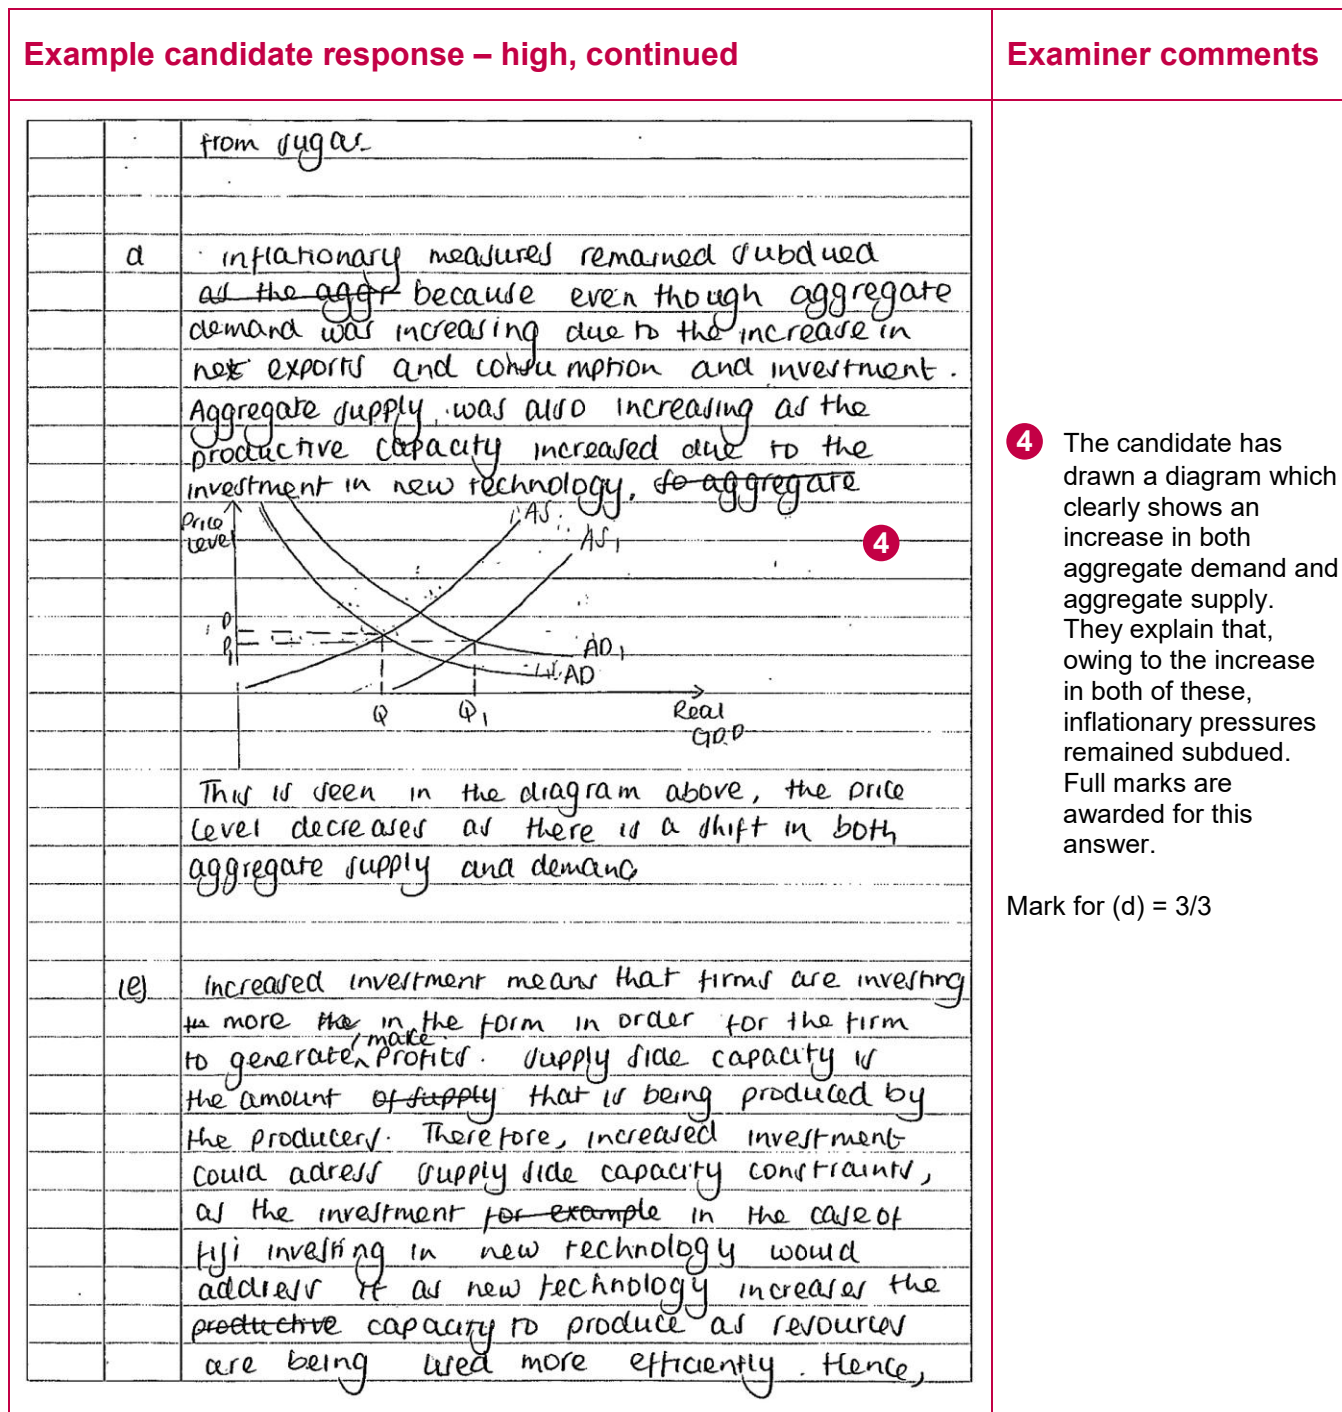 Example candidate response – high, continued
Examiner comments
from sugar
d
inflationary measures remained subdued
as the aggr because even though aggregate
demand was increasing due to the increase in
net exports and consumption and investment.
Aggregate supply was also increasing as the
productive capacity increased due to the
investment in new technology. so aggregate
Price
Level
AS
AS1
4
P
P1
AD1
AD
Q
Q1
Real
GDP
This is seen in the diagram above, the price
level decreases as there is a shift in both
aggregate supply and demand
(e)
increased investment means that firms are investing
more the in the form in order for the firm
to generate make profits. supply side capacity is
the amount of supply that is being produced by
the producers. Therefore, increased investment
could adress supply side capacity constraints,
as the investment for example in the case of
fiji investing in new technology would
address it as new technology increases the
productive capacity to produce as resources
are being used more efficiently. Hence,
4 The candidate has
drawn a diagram which
clearly shows an
increase in both
aggregate demand and
aggregate supply.
They explain that,
owing to the increase
in both of these,
inflationary pressures
remained subdued.
Full marks are
awarded for this
answer.
Mark for (d) = 3/3